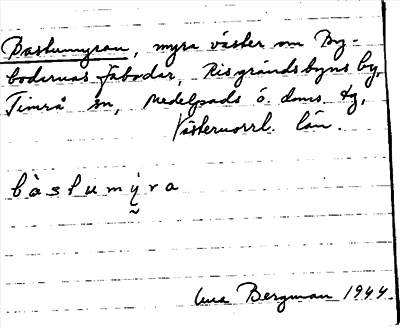 Bastumyran, myra väster om By-
bodarnas fäbodar, Risgrändsbyns by,
Timrå sn, Medelpads ö. doms. tg,
Västernorrl. län.
bàstumỳra
Bergman 1944